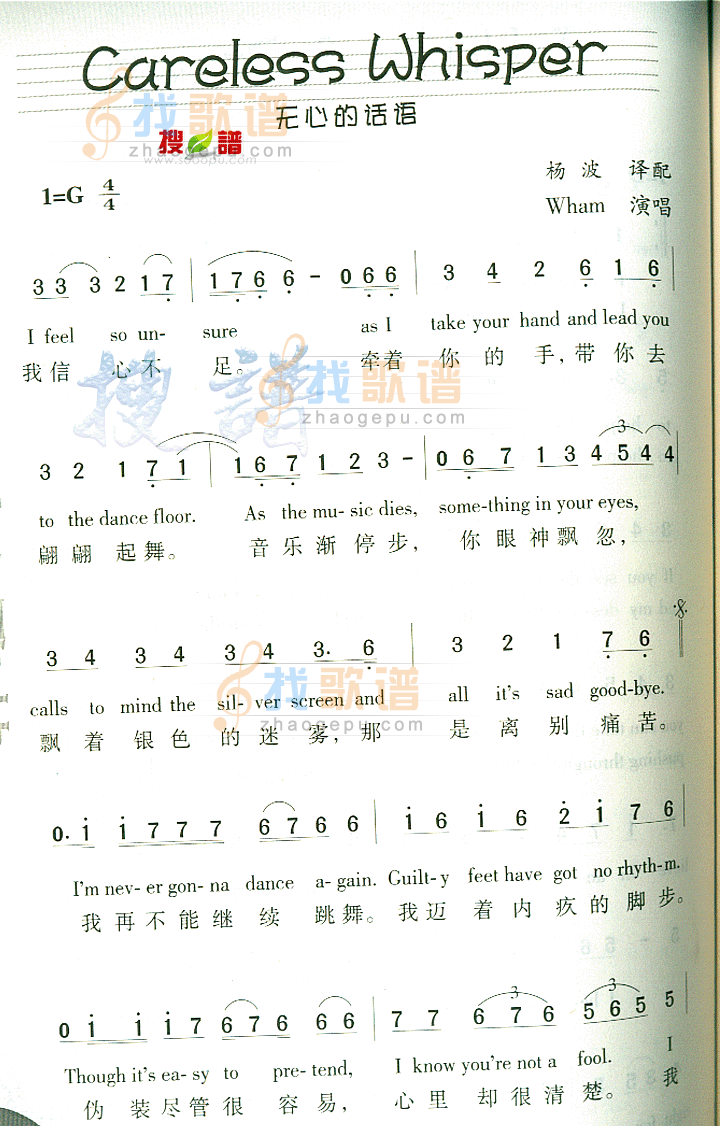 Careless Whisper
无心的话语
找歌谱
zhaogepu.com
搜谱
www.sooopu.com
杨波 译配
1=G 4/4
Wham 演唱
3 3 3 2 1 7 | 1 7 6 6 - 0 6 6 | 3 4 2 6 1 6 |
I feel so un- sure as I take your hand and lead you
我信 心不 足。 牵着 你 的 手, 带 你 去
3 2 1 7 1 | 1 6 7 1 2 3 - | 0 6 7 1 3 4 5 4 4
to the dance floor. As the mu- sic dies, some-thing in your eyes,
翩 翩 起 舞。 音 乐 渐 停 步, 你 眼 神 飘 忽,
搜谱
找歌谱
zhaogepu.com
3 4 3 4 3 4 3. 6 | 3 2 1 7 6
calls to mind the sil- ver screen and all it's sad good-bye.
飘 着 银 色 的 迷 雾, 那 是 离 别 痛 苦。
找歌谱
zhaogepu.com
0. i i 7 7 7 6 7 6 6 | i 6 i 6 2 i 7 6
I'm nev- er gon- na dance a- gain. Guilt-y feet have got no rhythm.
我 再 不 能 继 续 跳 舞。 我 迈 着 内 疚 的 脚 步。
找歌谱
zhaogepu.com
0 i i i 7 6 7 6 6 6 | 7 7 6 7 6 5 6 5 5
Though it's ea- sy to pre- tend, I know you're not a fool. I
伪 装 尽 管 很 容 易, 心 里 却 很 清 楚。 我
找歌谱
zhaogepu.com